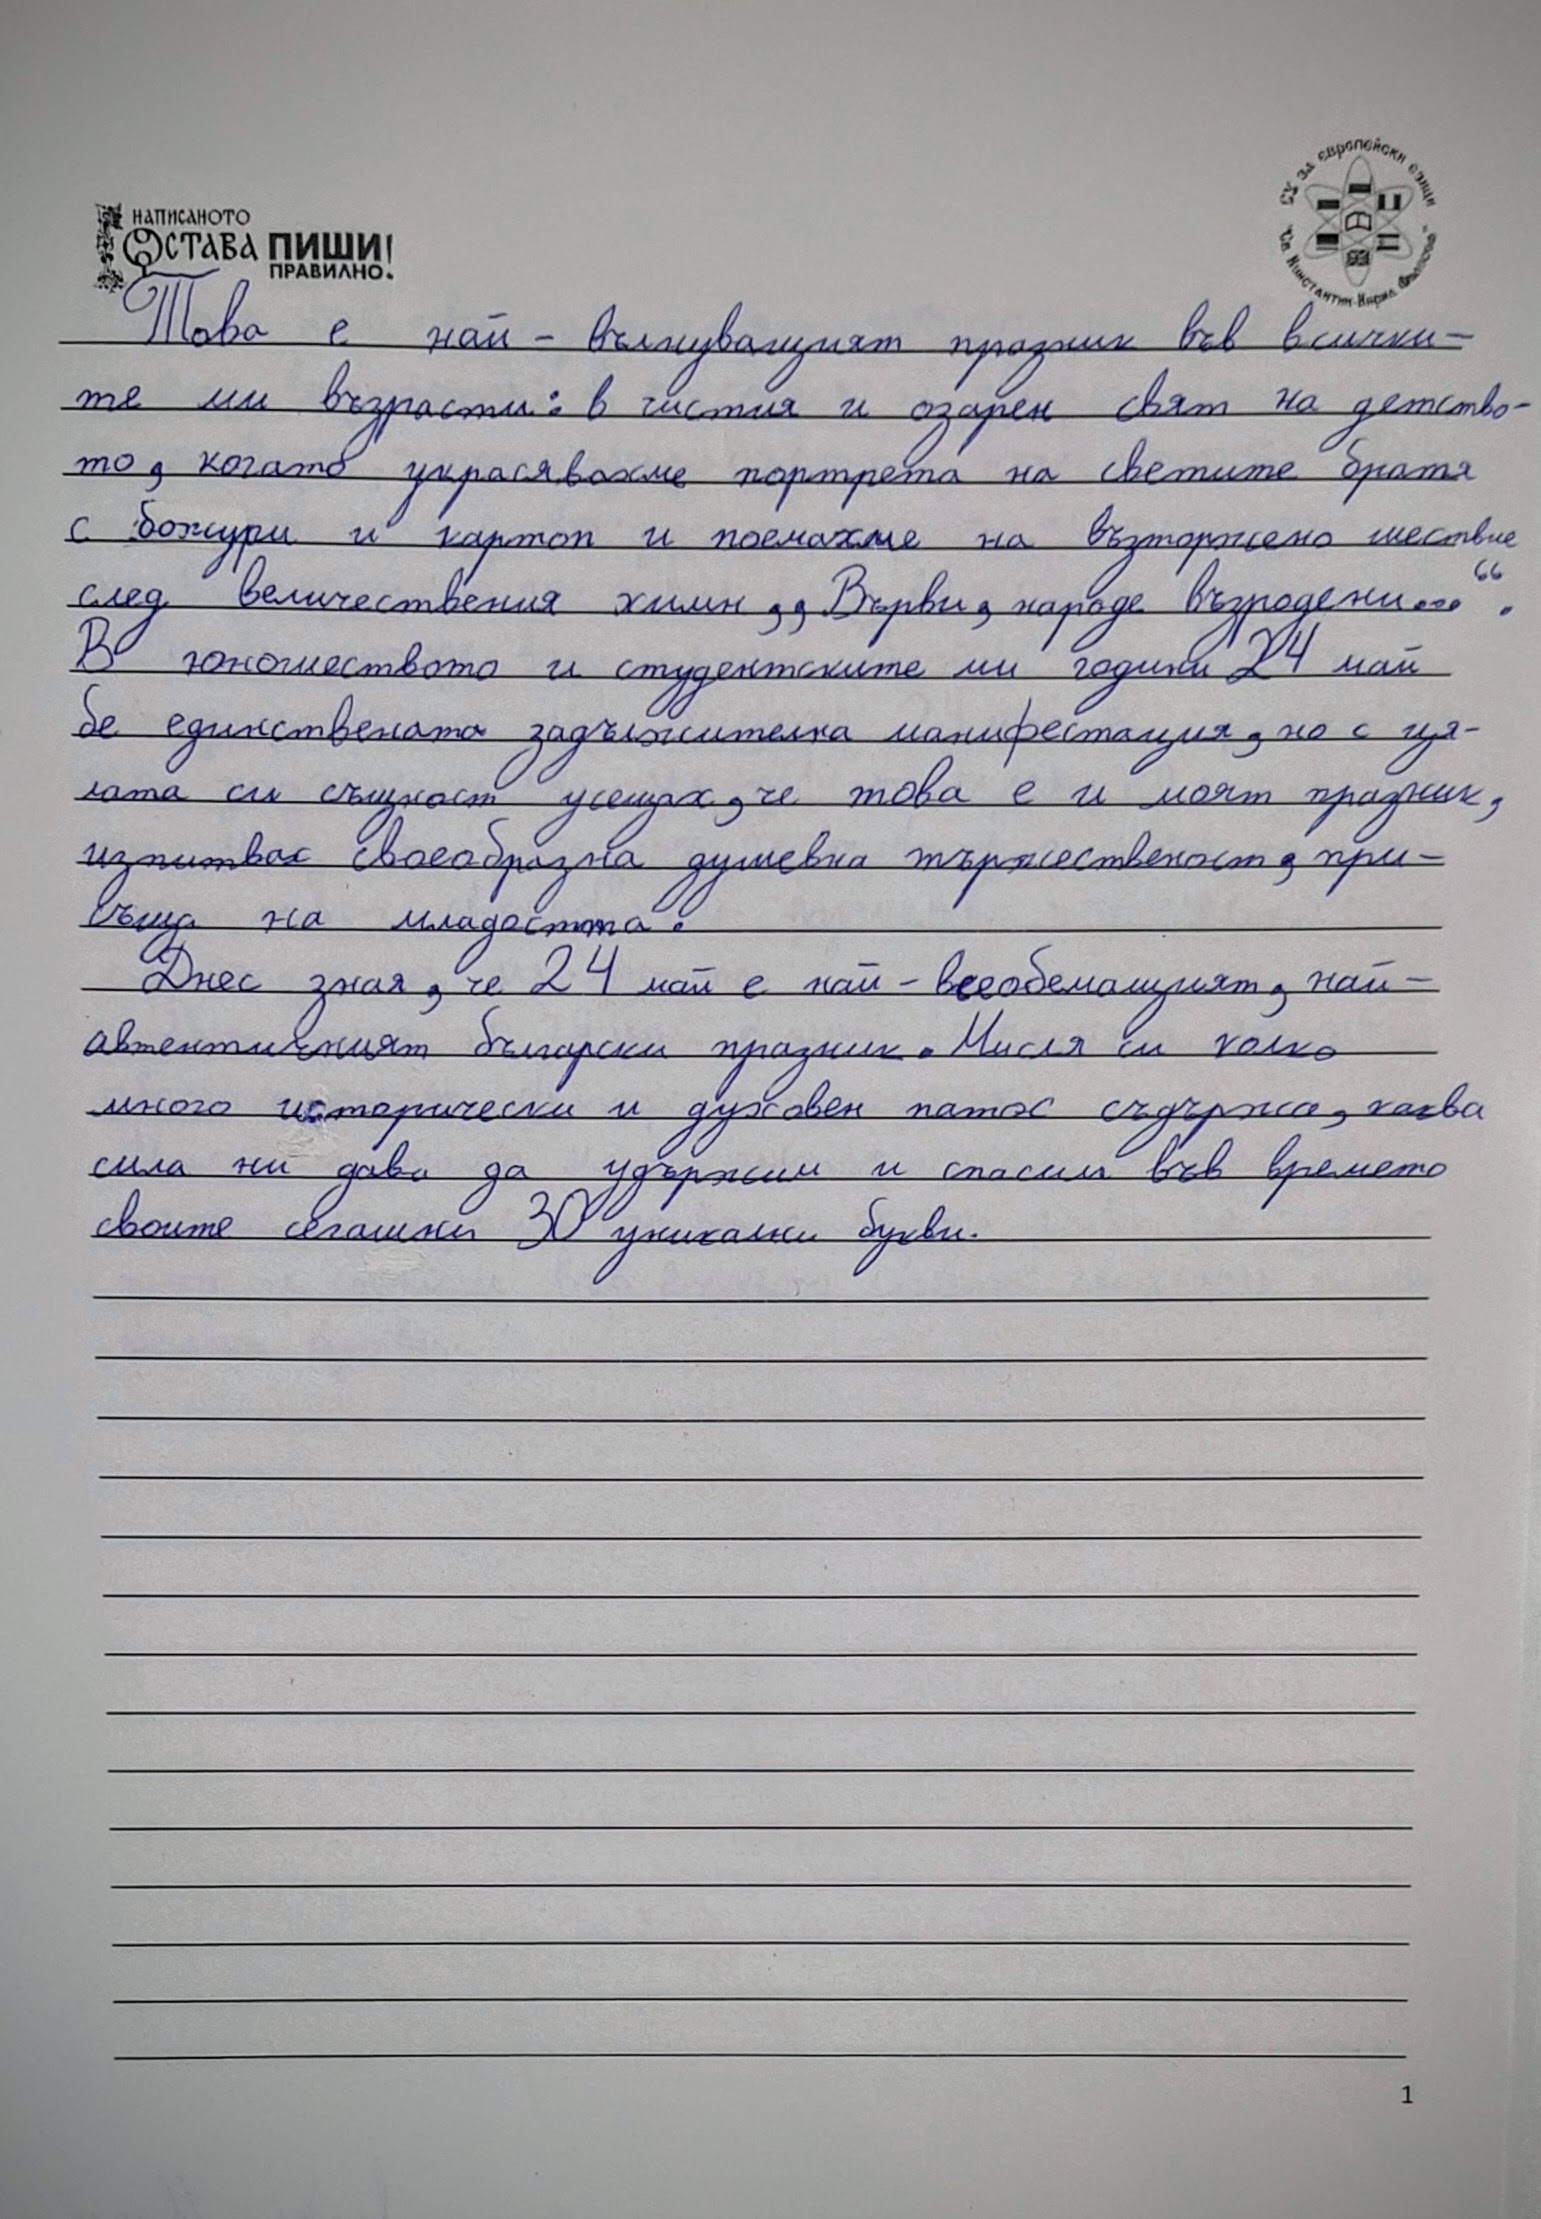 НАПИСАНОТО
ОСТАВА ПИШИ!
ПРАВИЛНО.
СУ за европейски езици
"Св. Константин-Кирил Философ"
Това е най-вълнуващият празник във всички-
те ми възрасти: в чистия и озарен свят на детство-
то, когато украсявахме портрета на светите братя
с божури и картоп и поемахме на възторжено шествие
след величествения химн ,,Върви, народе възродени...“.
В юношеството и студентските ми години 24 май
бе единствената задължителна манифестация, но с ця-
лата си същност усещах, че това е и моят празник,
изпитвах своеобразна душевна тържественост, при-
съща на младостта.
Днес зная, че 24 май е най-всеобемащият, най-
автентичният български празник. Мисля си колко
много исторически и духовен патос съдържа, каква
сила ни дава да удържим и спасим във времето
своите сегашни 30 уникални букви.
1